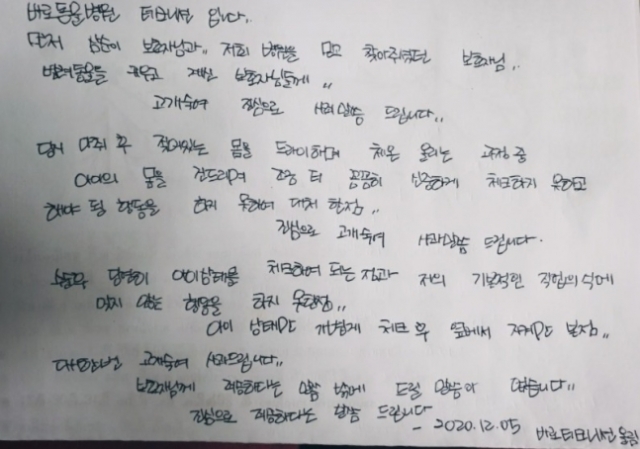 바로동물병원 테크니션 입니다.
먼저 상순이 보호자님과.. 저희 병원을 믿고 찾아주셨던 보호자님..
반려동물들 키우고 계신 보호자님들께..
고개숙여 진심으로 사과말씀 드립니다..
당시 마취 후 젖어있는 몸을 드라이하며 체온 올리는 과정 중
아이의 몸을 건드리며 한층 더 꼼꼼히 신중하게 체크하지 못하고
해야 될 행동을 하지 못하여 대처 한점..
진심으로 고개숙여 사과말씀 드립니다.
당연히 아이상태를 체크하여 되는 점과 저의 기본적인 직업의식에
맞지 않는 행동을 하지 못한점..
아이 상태 체크 후 옆에서 본점..
다시한번 고개숙여 사과드립니다..
보호자님께 죄송하다는 말씀 밖에 드릴 말씀이 없습니다..
진심으로 죄송하다는 말씀 드립니다
- 2020.12.05 바로테크니션 올림